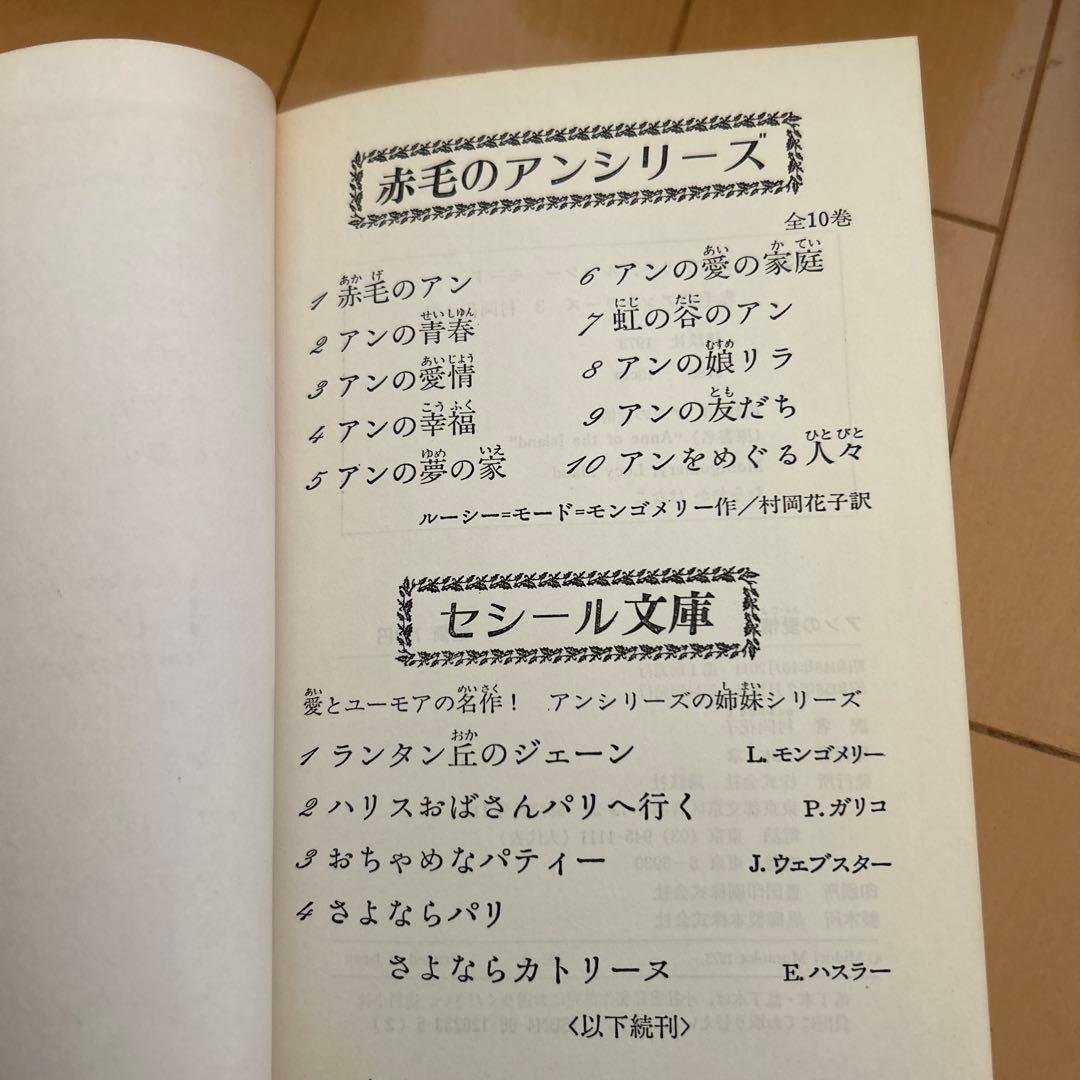 赤毛のアンシリーズ
全10巻
1 赤毛のアン
2 アンの青春
3 アンの愛情
4 アンの幸福
5 アンの夢の家
6 アンの愛の家庭
7 虹の谷のアン
8 アンの娘リラ
9 アンの友だち
10 アンをめぐる人々
ルーシー=モード=モンゴメリー作／村岡花子訳
セシール文庫
愛とユーモアの名作! アンシリーズの姉妹シリーズ
1 ランタン丘のジェーン L.モンゴメリー
2 ハリスおばさんパリへ行く P.ガリコ
3 おちゃめなパティー J.ウェブスター
4 さよならパリ
さよならカトリーヌ E.ハスラー
〈以下続刊〉